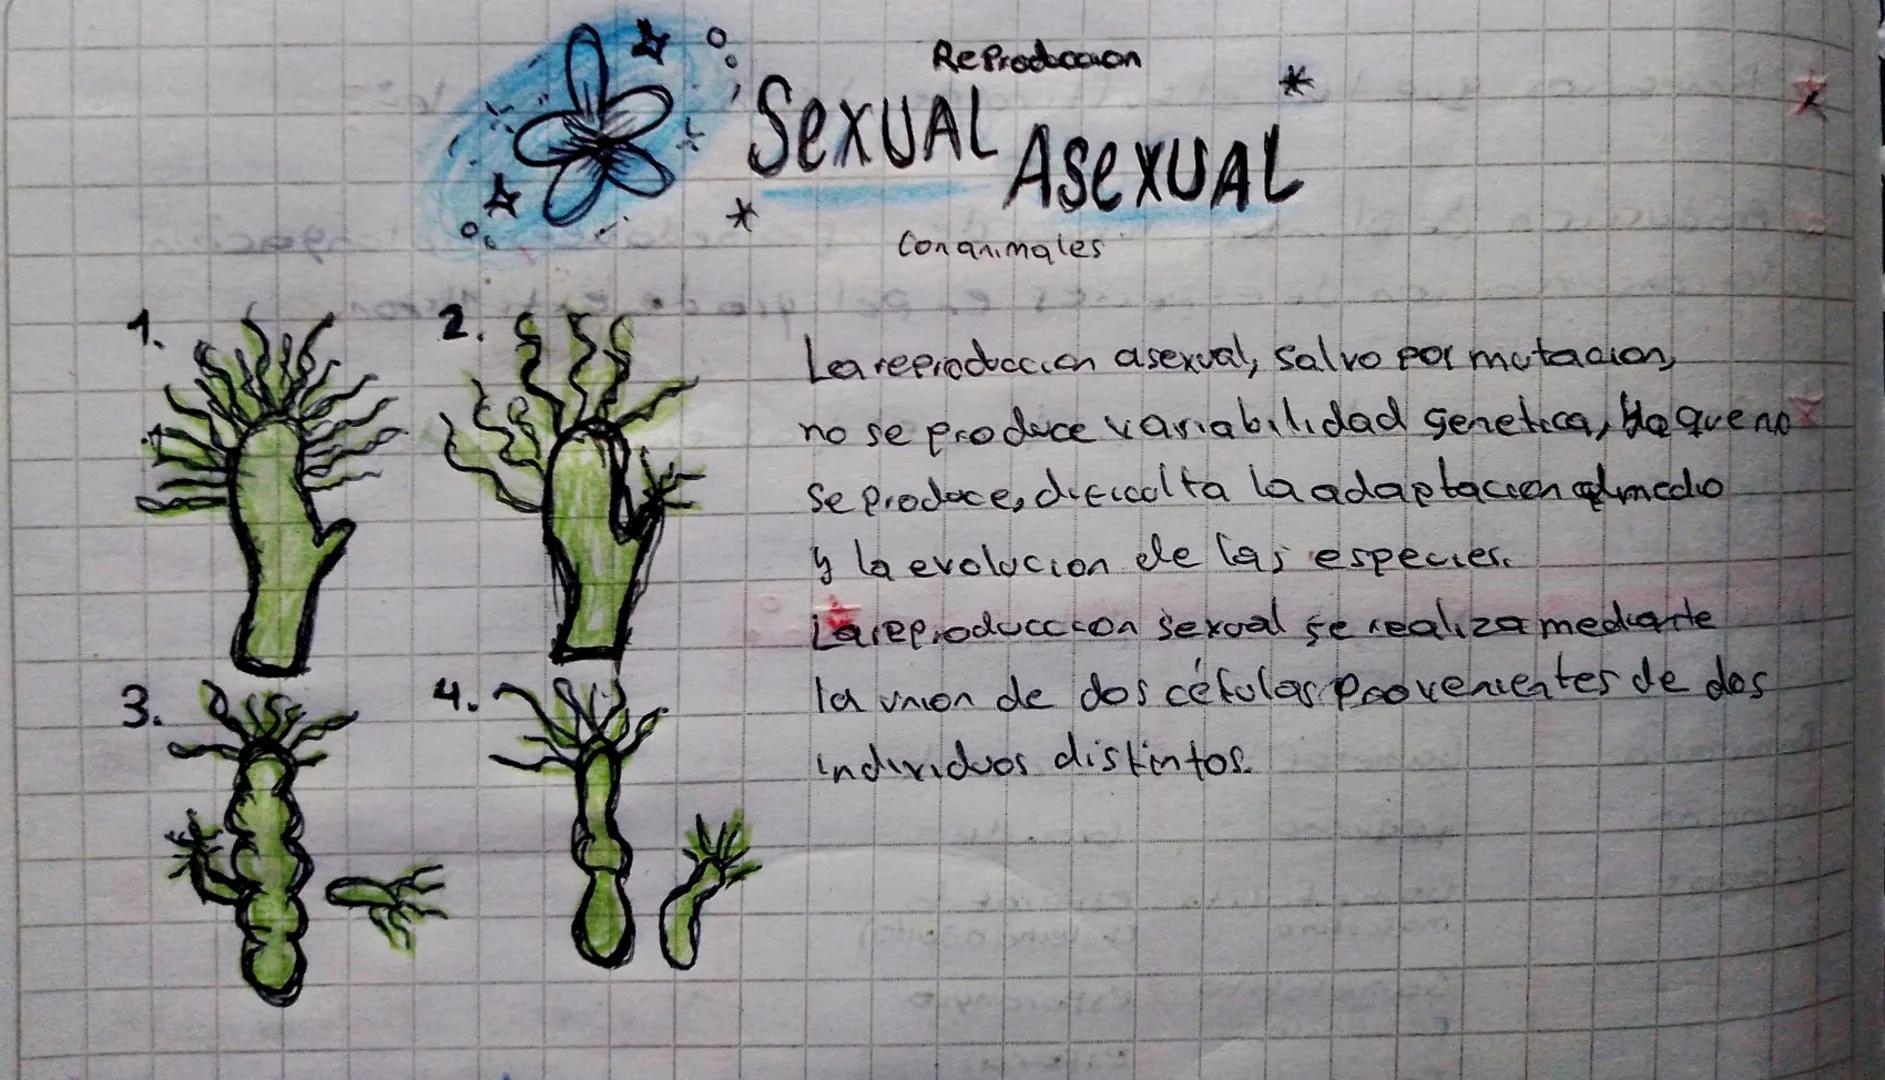 Reproduccion
Sexual
Asexual
Con animales
1.
2.
La reproduccion asexual, salvo por mutacion,
no se produce variabilidad genetica, Ya que no
se produce, dificulta la adaptacion al medio
y la evolucion de las especies.
La reproduccion sexual se realiza mediante
la union de dos células provenientes de dos
individuos distintos.
3.
4.